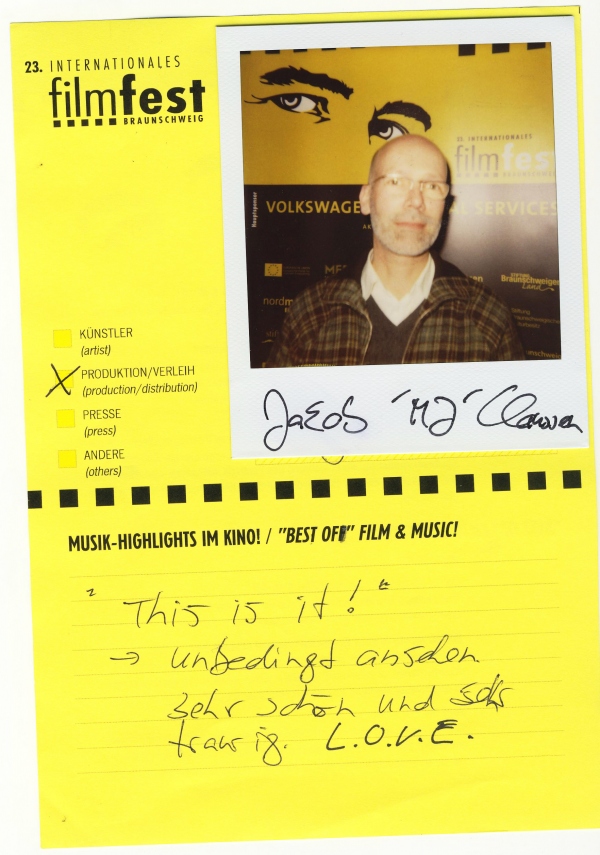 23. INTERNATIONALES
filmfest
BRAUNSCHWEIG
23. INTERNATIONALES
filmfest
Hauptsponsor
VOLKSWAGE
L SERVICES
Braunschweiger
Land
nordm
KÜNSTLER
(artist)
X PRODUKTION/VERLEIH
(production/distribution)
PRESSE
(press)
ANDERE
(others)
Jakob "MJ"
MUSIK-HIGHLIGHTS IM KINO! / "BEST OFF" FILM & MUSIC!
"This is it!"
→ unbedingt ansehen
sehr schön und sehr
traurig. L.O.V.E.